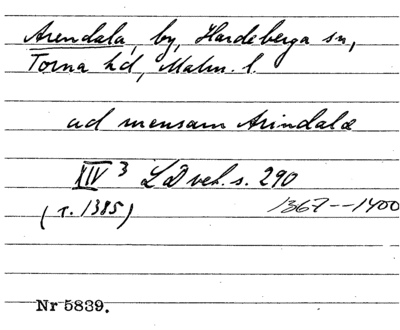 Arendala, by, Hardeberga sn,
Torna hd, Malm. l.
ad mensam Arindalæ
XIV 3 LD vet. s. 290
(r. 1385) 1367--1400
Nr 5839.